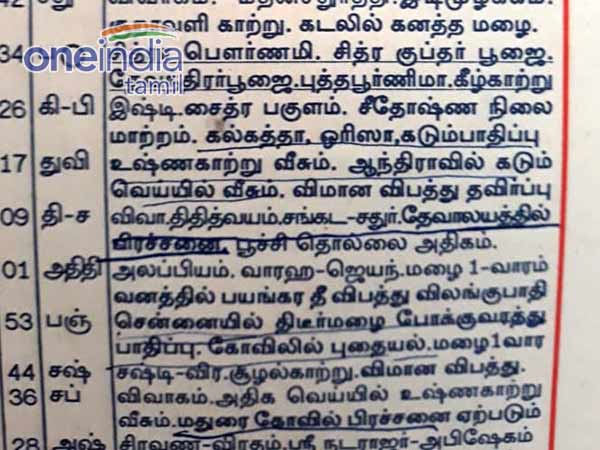 சூறாவளி காற்று. கடலில் கனத்த மழை.
34 பௌர்ணமி. சித்ர குப்தர் பூஜை.
oneindia
tamil
புத்தபூர்ணிமா.கீழ்காற்று
26 கி-பி இஷ்டி.சைத்ர பகுளம். சீதோஷ்ண நிலை
மாற்றம். கல்கத்தா, ஒரிஸா,கடும்பாதிப்பு
17 துவி உஷ்ணகாற்று வீசும். ஆந்திராவில் கடும்
வெய்யில் வீசும். விமான விபத்து தவிர்ப்பு
09 தி-ச விவா.திதித்வயம்.சங்கட-சதுர்.தேவாலயத்தில்
பிரச்சனை. பூச்சி தொல்லை அதிகம்.
01 அதிதி அலப்பியம். வாரஹ-ஜெயந்.மழை 1-வாரம்
வனத்தில் பயங்கர தீ விபத்து விலங்குபாதி
53 பஞ் சென்னையில் திடீர்மழை போக்குவரத்து
பாதிப்பு. கோவிலில் புதையல்.மழை1வார
44 சஷ் சஷ்டி-விர.சூழல்காற்று.விமான விபத்து.
36 சப் விவாகம். அதிக வெய்யில் உஷ்ணகாற்று
வீசும்.மதுரை கோவில் பிரச்சனை ஏற்படும்
28 அஷ் சிரவண-விரதம்.ஸ்ரீ நடராஜர்-அபிஷேகம்